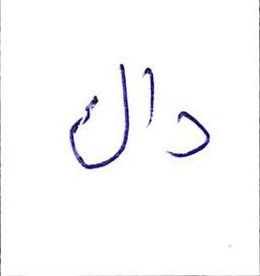 دال